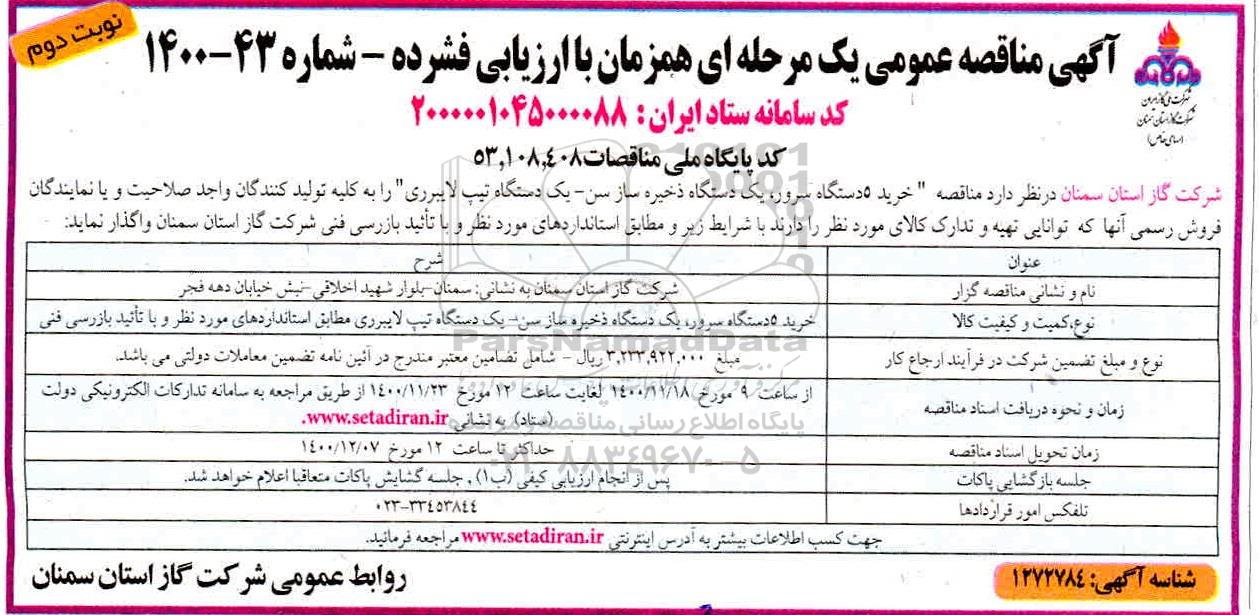 نوبت دوم
آگهی مناقصه عمومی یک مرحله ای همزمان با ارزیابی فشرده – شماره ۴۳-۱۴۰۰
شرکت ملی گاز ایران
شرکت گاز استان سمنان
(سهامی خاص)
کد سامانه ستاد ایران : ۲۰۰۰۰۰۱۰۴۵۰۰۰۰۸۸
کد پایگاه ملی مناقصات۵۳,۱۰۸,٤۰۸
شرکت گاز استان سمنان درنظر دارد مناقصه " خرید ۵دستگاه سرور، یک دستگاه ذخیره ساز سن- یک دستگاه تیپ لایبرری" را به کلیه تولید کنندگان واجد صلاحیت و یا نمایندگان
فروش رسمی آنها که توانایی تهیه و تدارک کالای مورد نظر را دارند با شرایط زیر و مطابق استانداردهای مورد نظر و با تأئید بازرسی فنی شرکت گاز استان سمنان واگذار نماید:
عنوان شرح
نام و نشانی مناقصه گزار شرکت گاز استان سمنان به نشانی: سمنان-بلوار شهید اخلاقی-نبش خیابان دهه فجر
نوع،کمیت و کیفیت کالا خرید ۵دستگاه سرور، یک دستگاه ذخیره ساز سن- یک دستگاه تیپ لایبرری مطابق استانداردهای مورد نظر و با تأئید بازرسی فنی
نوع و مبلغ تضمین شرکت در فرآیند ارجاع کار مبلغ ۳,۲۳۳,۹۲۲,۰۰۰ ریال – شاملی تضامین معتبر مندرج در آئین نامه تضمین معاملات دولتی می باشد.
زمان و نحوه دریافت اسناد مناقصه از ساعت ۹ مورخ ۱٤۰۰/۱۱/۱۸ لغایت ساعت ۱۲ مورخ ۱٤۰۰/۱۱/۲۳ از طریق مراجعه به سامانه تدارکات الکترونیکی دولت
(ستاد) به نشانی www.setadiran.ir.
زمان تحویل اسناد مناقصه حداکثر تا ساعت ۱۲ مورخ ۱٤۰۰/۱۲/۰۷
جلسه بازگشایی پاکات پس از انجام ارزیابی کیفی (ب۱) , جلسه گشایش پاکات متعاقبا اعلام خواهد شد.
تلفکس امور قراردادها ۰۲۳-۳۳٤۵۳۸٤٤
جهت کسب اطلاعات بیشتر به آدرس اینترنتی www.setadiran.ir مراجعه فرمائید.
شناسه آگهی: ۱۲۷۲۷۸٤
روابط عمومی شرکت گاز استان سمنان
ParsNamadData
پایگاه اطلاع رسانی مناقصه و مزایده
۰۲۱-۸۸۳۴۹۶۷۰-۵